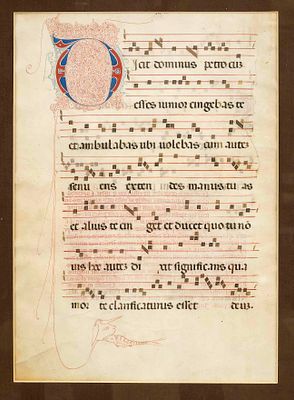 Dicit dominus petro cū
esses iunior cingebas te
et ambulabas ubi volebas cum autē
senu eris exten des manus tu as
et alius te cin get et ducet quo tu nō
uis hoc autē di xit significans qua
mor te clarificaturus esset deū.